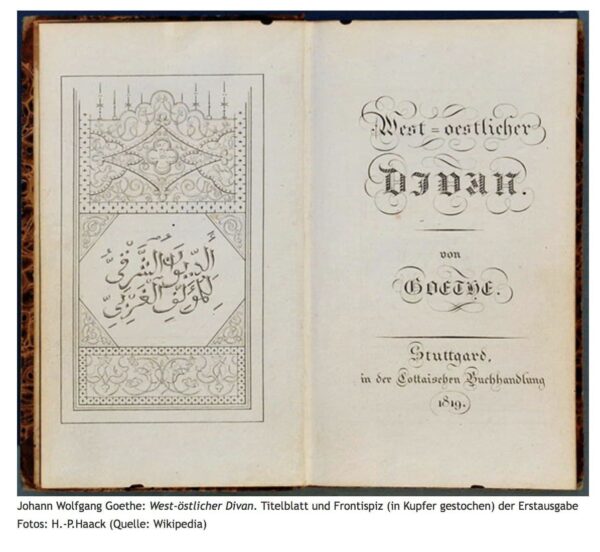 ألديوان الشرقيُّ
للمؤلّف الغربيّ
West=oestlicher
DIVAN.
von
GOETHE.
Stuttgard,
in der Cottaischen Buchhandlung
1819.
Johann Wolfgang Goethe: West-östlicher Divan. Titelblatt und Frontispiz (in Kupfer gestochen) der Erstausgabe
Fotos: H.-P.Haack (Quelle: Wikipedia)